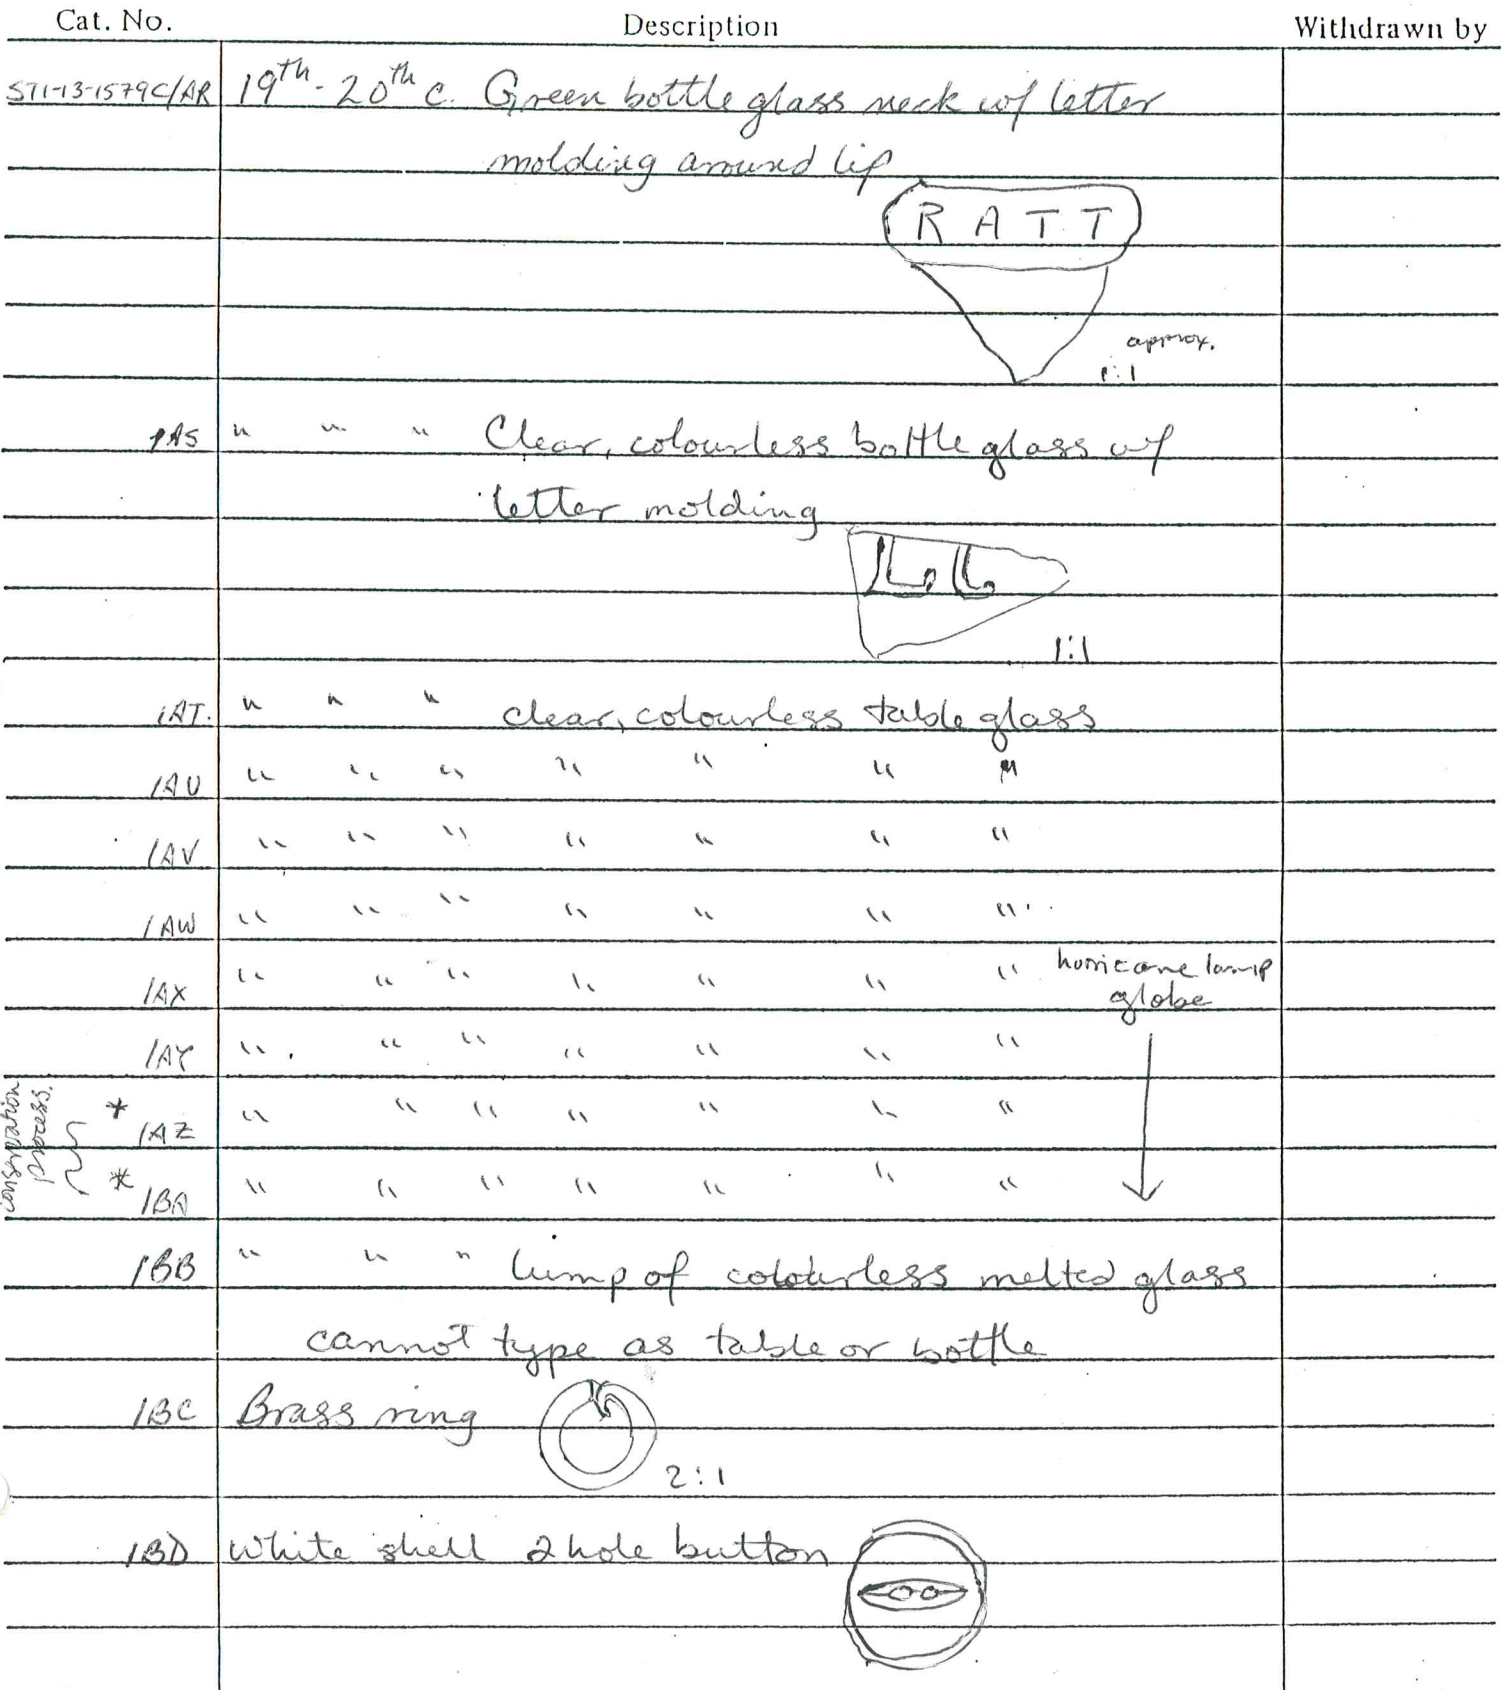 Cat. No. Description Withdrawn by
STI-13-1579C/AR 19th - 20th c. Green bottle glass neck w/ letter
molding around lip
R A T T
approx.
1:1
/AS " " " Clear, colourless bottle glass w/
letter molding
1:1
/AT. " " " clear, colourless table glass
/AU " " " " " " "
/AV " " " " " " "
/AW " " " " " " "
/AX " " " " " " " hurricane lamp
globe
/AY " " " " " " "
conservation
process.
* /AZ " " " " " " "
* /BA " " " " " " "
/BB " " " lump of colourless melted glass
cannot type as table or bottle
/BC Brass ring
2:1
/BD White shell 2 hole button